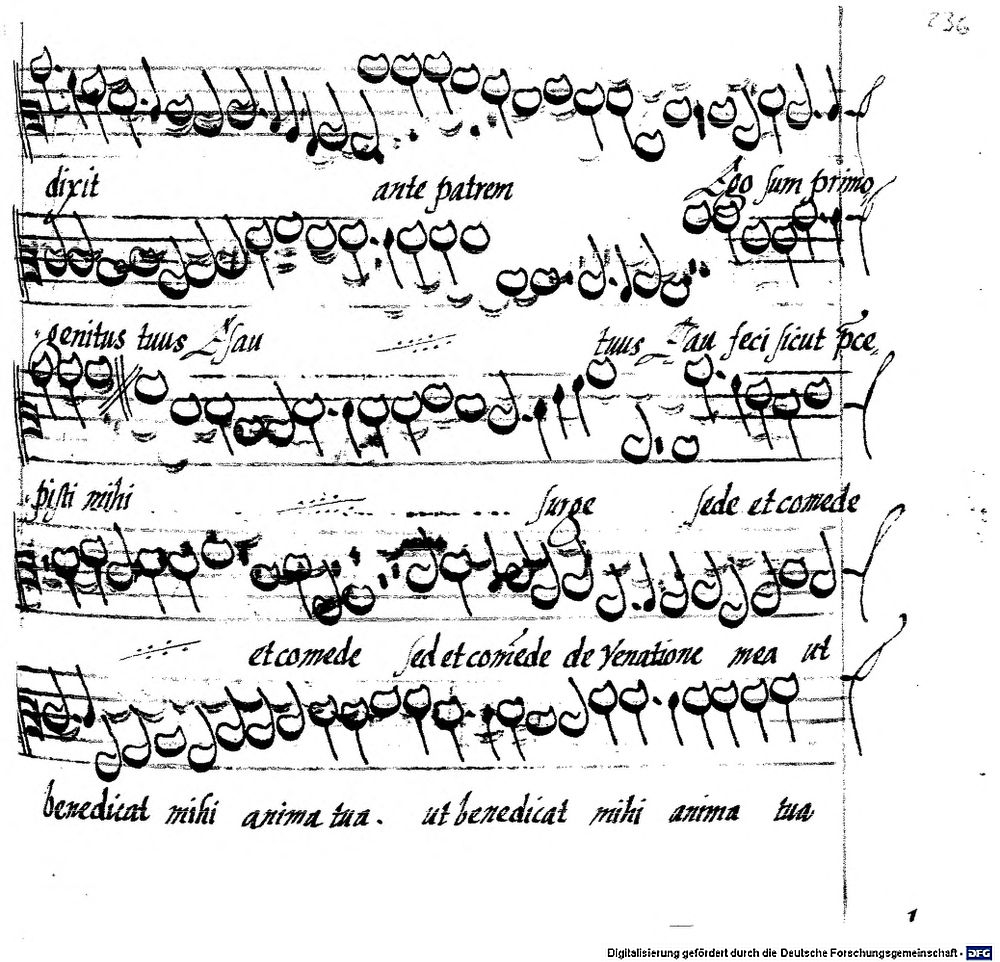 236
dixit ante patrem Ego sum primo
genitus tuus Esau tuus Esau feci sicut p̃ce,
pisti mihi surge sede et comede
et comede sed et com̃ede de Venatione mea ut
benedicat mihi anima tua. ut benedicat mihi anima tua
1
Digitalisierung gefördert durch die Deutsche Forschungsgemeinschaft - DFG